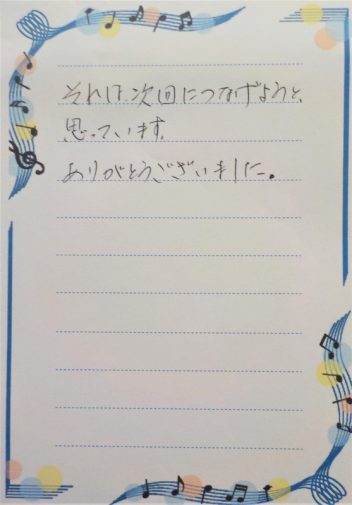 それは、次回につなげようと、
思っています。
ありがとうございました。